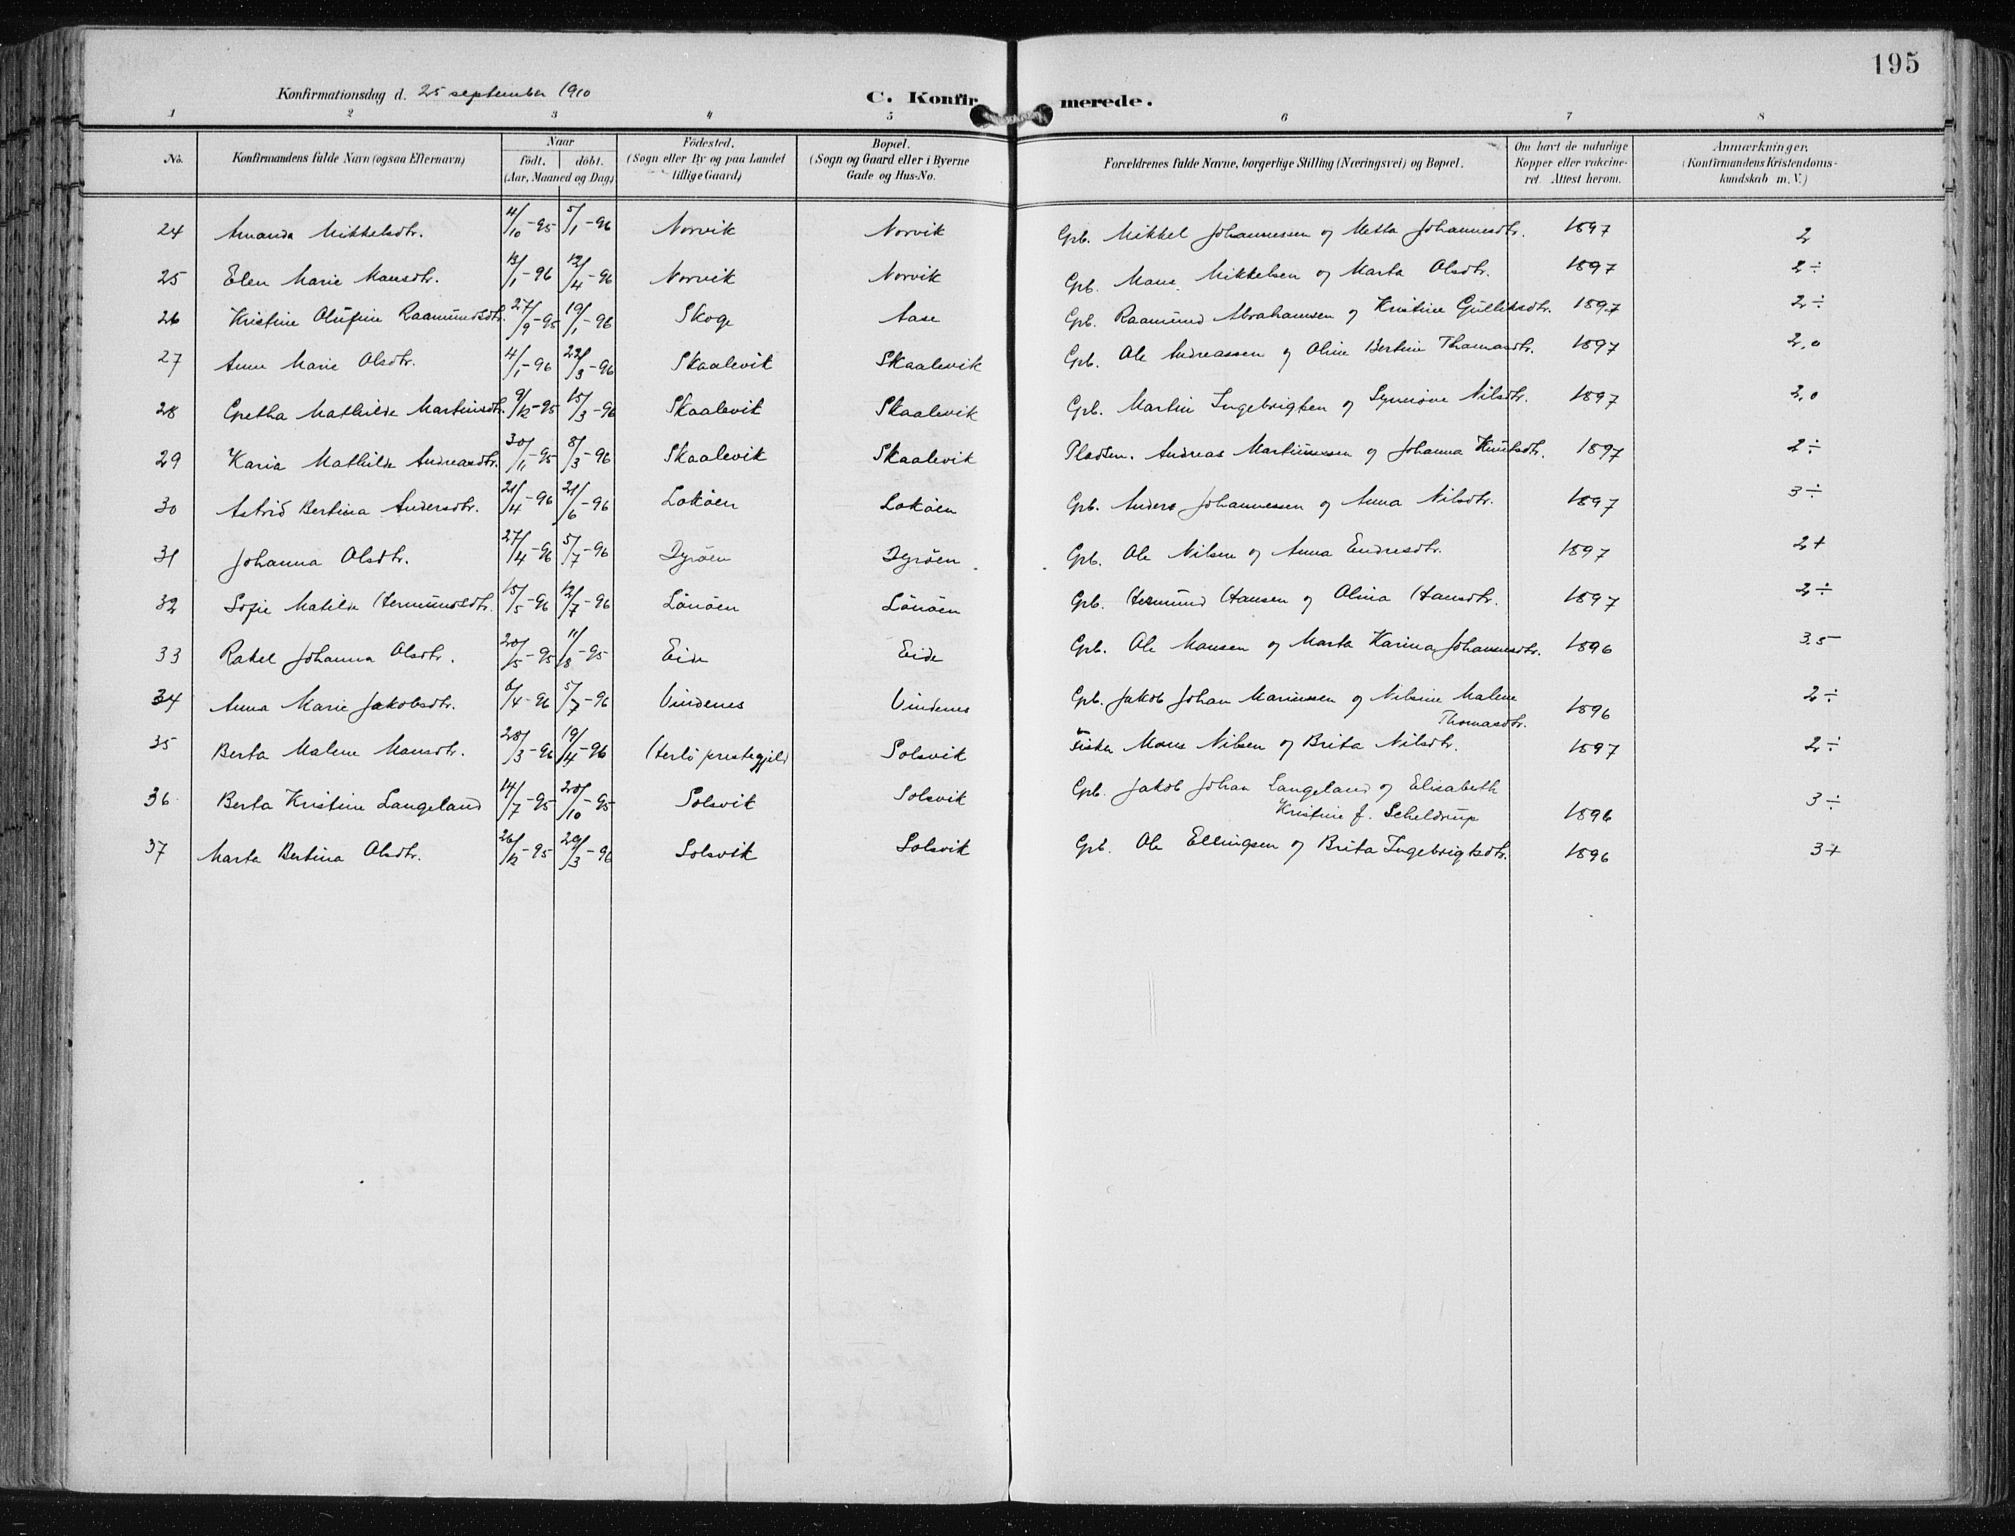 195
Konfirmationsdag d. 25 september 1910 C. Konfirmerede.
1 2 3 4 5 6 7 8
No. Konfirmandens fulde Navn (ogsaa Efternavn) Naar født. døbt. (Aar, Maaned og Dag) Fødested. (Sogn eller By og paa Landet tillige Gaard) Bopæl. (Sogn og Gaard eller i Byerne Gade og Hus-No. Forældrenes fulde Navne, borgerlige Stilling (Næringsvei) og Bopæl. Om havt de naturlige Kopper eller vakcineret. Attest herom. Anmærkninger. (Konfirmandens Kristendomskundskab m. V.)
24 Amanda Mikkelsdtr. 4/10-95 5/1-96 Norvik Norvik Gpb. Mikkel Johannessen og Metta Johannesdtr. 1897 2
25 Elen Marie Mansdtr. 13/1-96 12/4-96 Norvik Norvik Gpb. Mans Mikkelsen og Marta Olsdtr. 1897 2÷
26 Kristine Olufine Raamundsdtr. 27/9-95 19/1-96 Skoge Aase Gpb. Raamund Abrahamsen og Kristine Gulliksdtr. 1897 2÷
27 Anne Marie Olsdtr. 4/1-96 22/3-96 Skaalevik Skaalevik Gpb. Ole Andreassen og Oline Bertine Thomasdtr. 1897 2,0
28 Gretha Mathilde Martinsdtr. 9/12-95 15/3-96 Skaalevik Skaalevik Gpb. Martin Ingebrigtsen og Synnøve Nilsdtr. 1897 2,0
29 Karia Mathilde Andreasdtr. 30/1-95 8/3-96 Skaalevik Skaalevik Pladsm. Andreas Martinussen og Johanna Knutsdtr. 1897 2÷
30 Astrid Bertina Andersdtr. 21/4-96 21/6-96 Lokøen Lokøen Gpb. Anders Johannessen og Anna Nilsdtr. 1897 3÷
31 Johanna Olsdtr. 27/4-96 5/7-96 Dyrøen Dyrøen Gpb. Ole Nilsen og Anna Endresdtr. 1897 2+
32 Sofie Matilde Hermundsdtr. 15/5-96 12/7-96 Lønøen Lønøen Gpb. Hermund Hansen og Olina Hansdtr. 1897 2÷
33 Rakel Johanna Olsdtr. 20/5-95 11/8-95 Eide Eide Gpb. Ole Monsen og Marta Karina Johannesdtr. 1896 3,5
34 Anna Marie Jakobsdtr. 6/4-96 5/7-96 Vindenes Vindenes Gpb. Jakob Johan Marinussen og Nilsine Malene Thomasdtr. 1896 2÷
35 Berta Malene Monsdtr. 28/3-96 19/4-96 Herlø prestegjeld Solsvik Fisker Mons Nilsen og Brita Nilsdtr. 1897 2÷
36 Berta Kristine Langeland 14/7-95 20/10-95 Solsvik Solsvik Gpb. Jakob Johan Langeland og Elisabeth
Kristine f. Scheldrup 1896 3÷
37 Marta Bertina Olsdtr. 26/12-95 29/3-96 Solsvik Solsvik Gpb. Ole Ellingsen og Brita Ingebrigtsdtr. 1896 3+